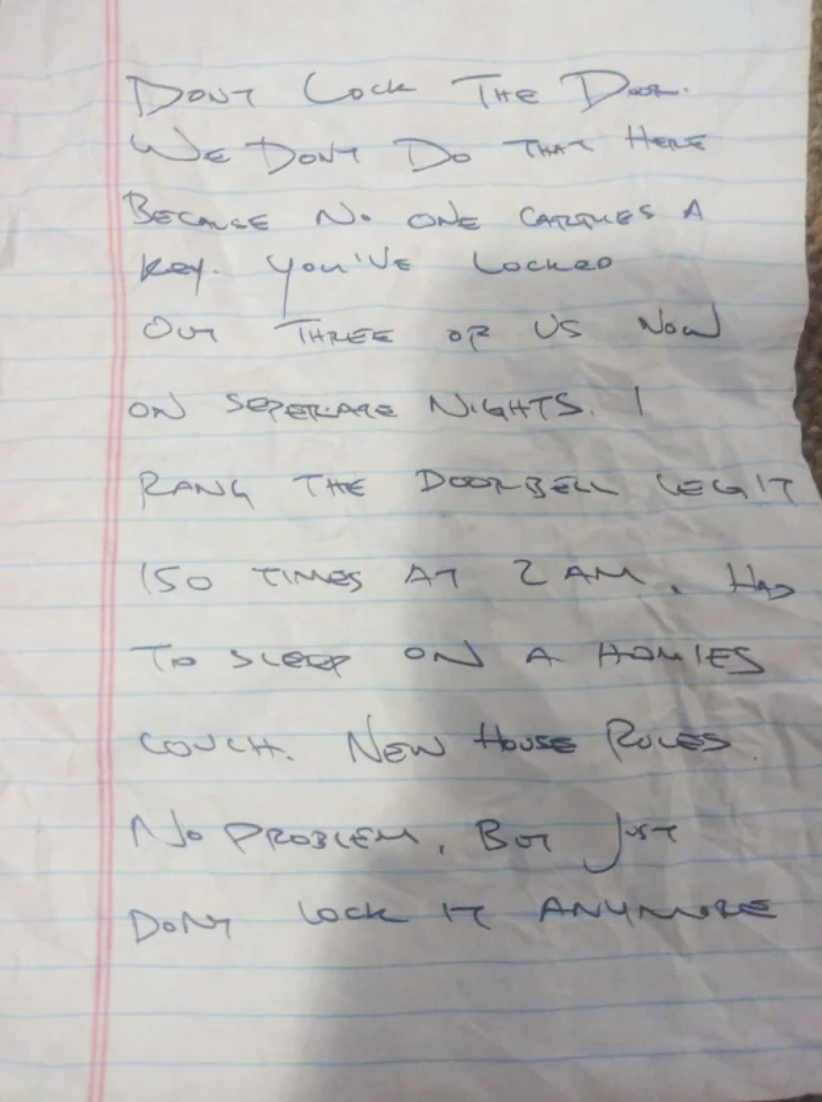 DONT LOCK THE DOOR.
WE DONT DO THAT HERE
BECAUSE NO ONE CARRIES A
KEY. YOU'VE LOCKED
OUT THREE OF US NOW
ON SEPERATE NIGHTS. I
RANG THE DOORBELL LEGIT
150 TIMES AT 2 AM. HAD
TO SLEEP ON A HOMIES
COUCH. NEW HOUSE RULES.
NO PROBLEM, BUT JUST
DONT LOCK IT ANYMORE